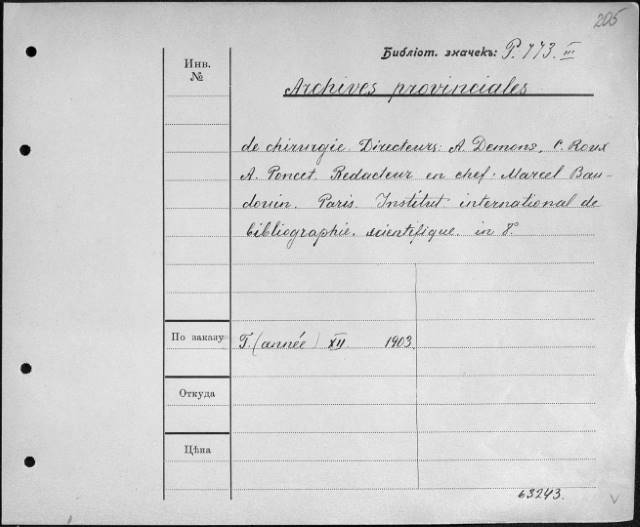 205
Библіот. значекъ: P. 773. III
Инв.
№
Archives provinciales
de chirurgie. Directeurs: A. Demons, C. Roux
A. Poncet. Redacteur en chef: Marcel Bau-
douin. Paris. Institut international de
bibliographie. scientifique. in 8°.
По заказу
T. (année) XII 1903.
Откуда
Цѣна
63243.